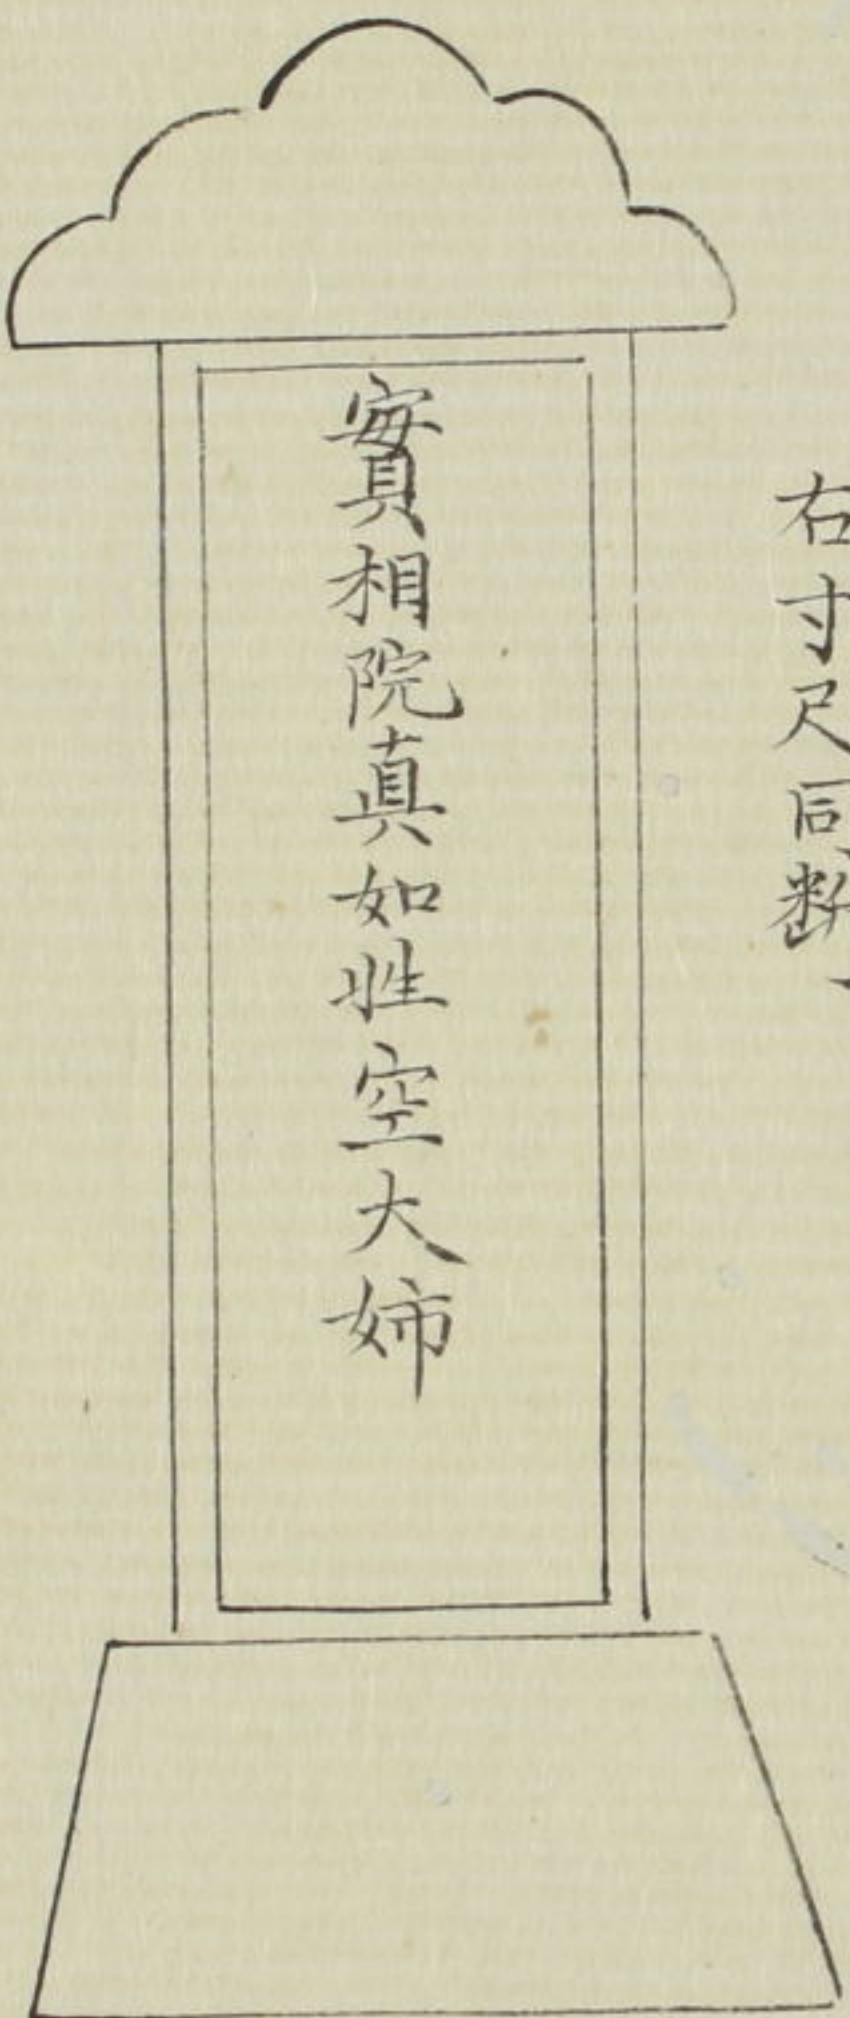 右寸尺同断
實相院真如性空大姉